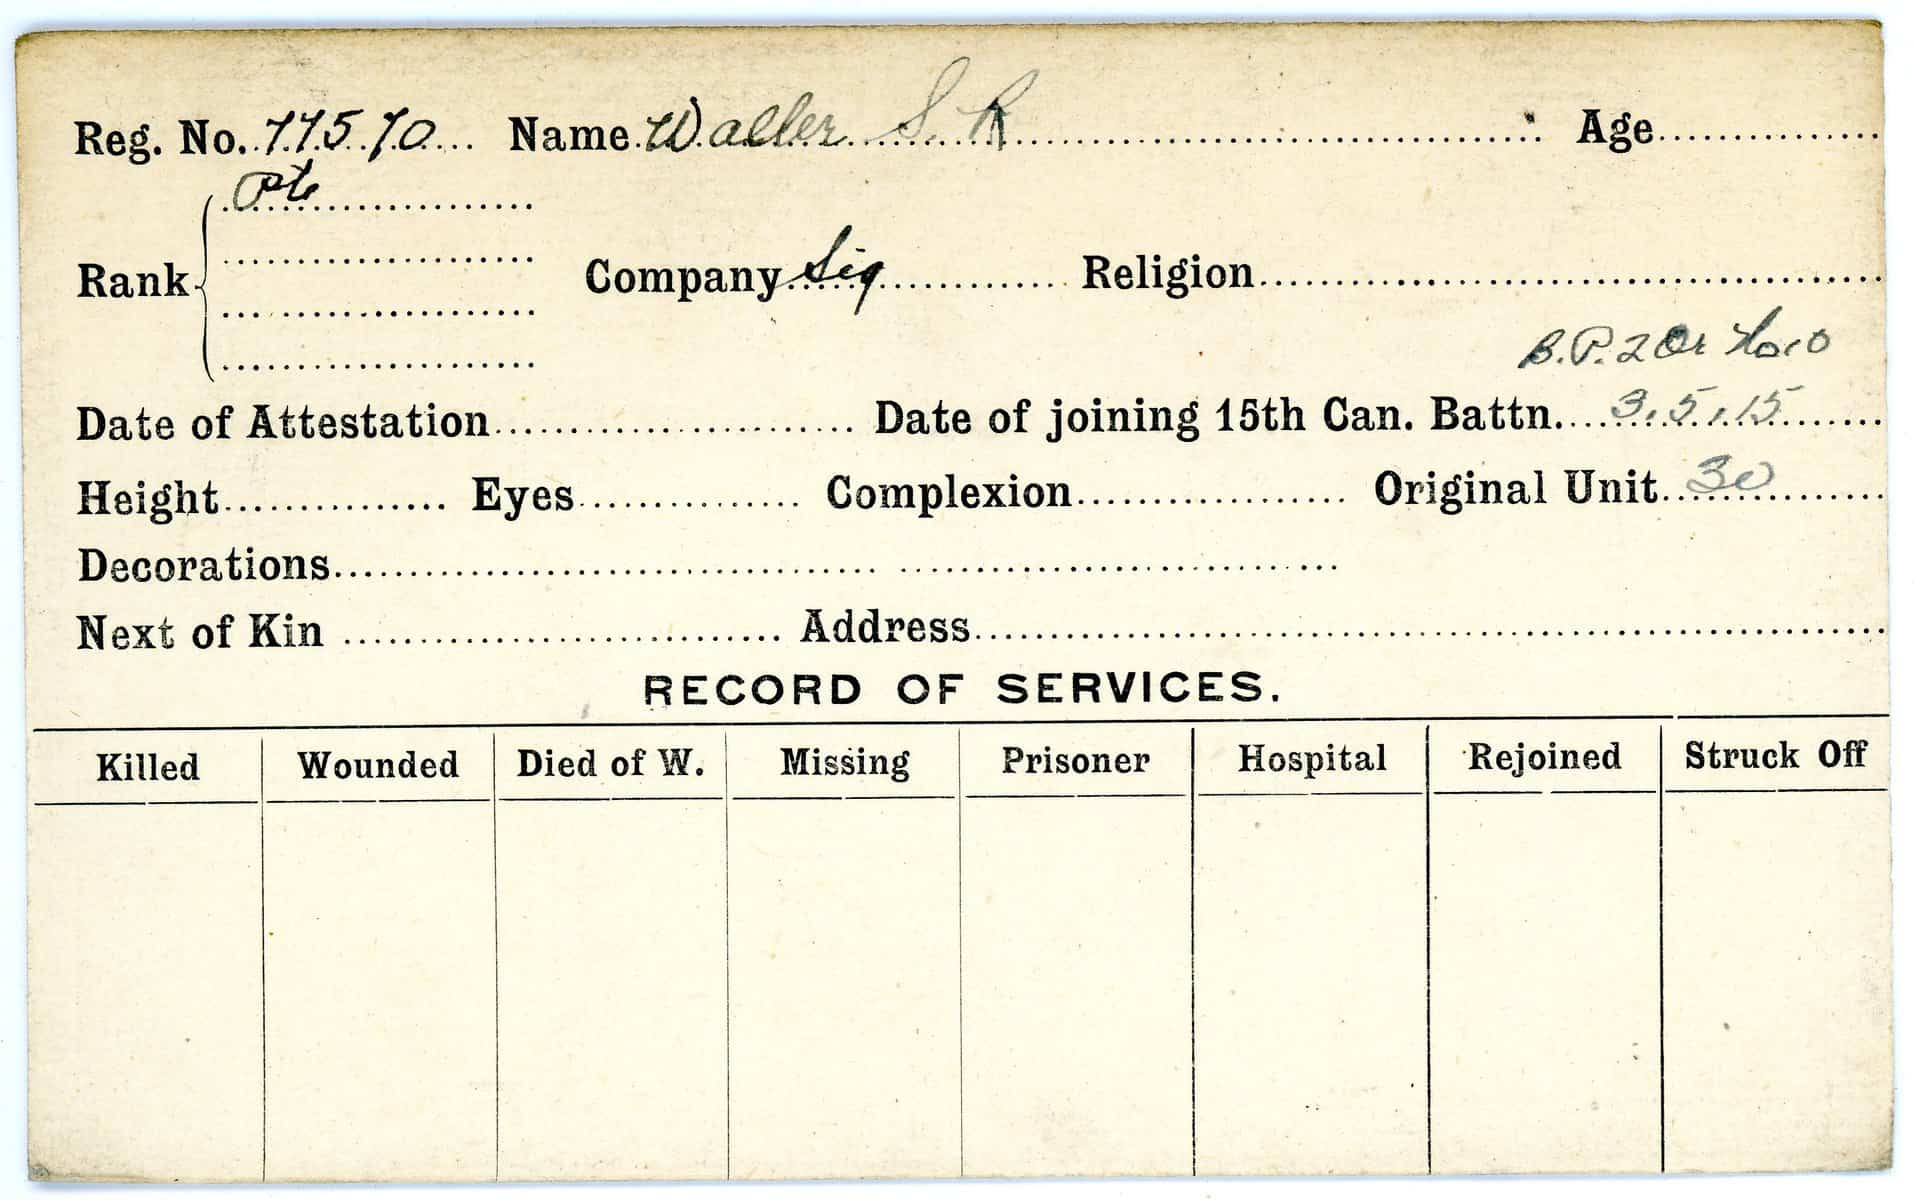 Reg. No. 77570 Name Waller S. R Age
Pte
Rank Company Sig Religion
B.P. 2 Or
Date of Attestation Date of joining 15th Can. Battn. 3.5.15
Height Eyes Complexion Original Unit 30
Decorations
Next of Kin Address
RECORD OF SERVICES.
Killed Wounded Died of W. Missing Prisoner Hospital Rejoined Struck Off